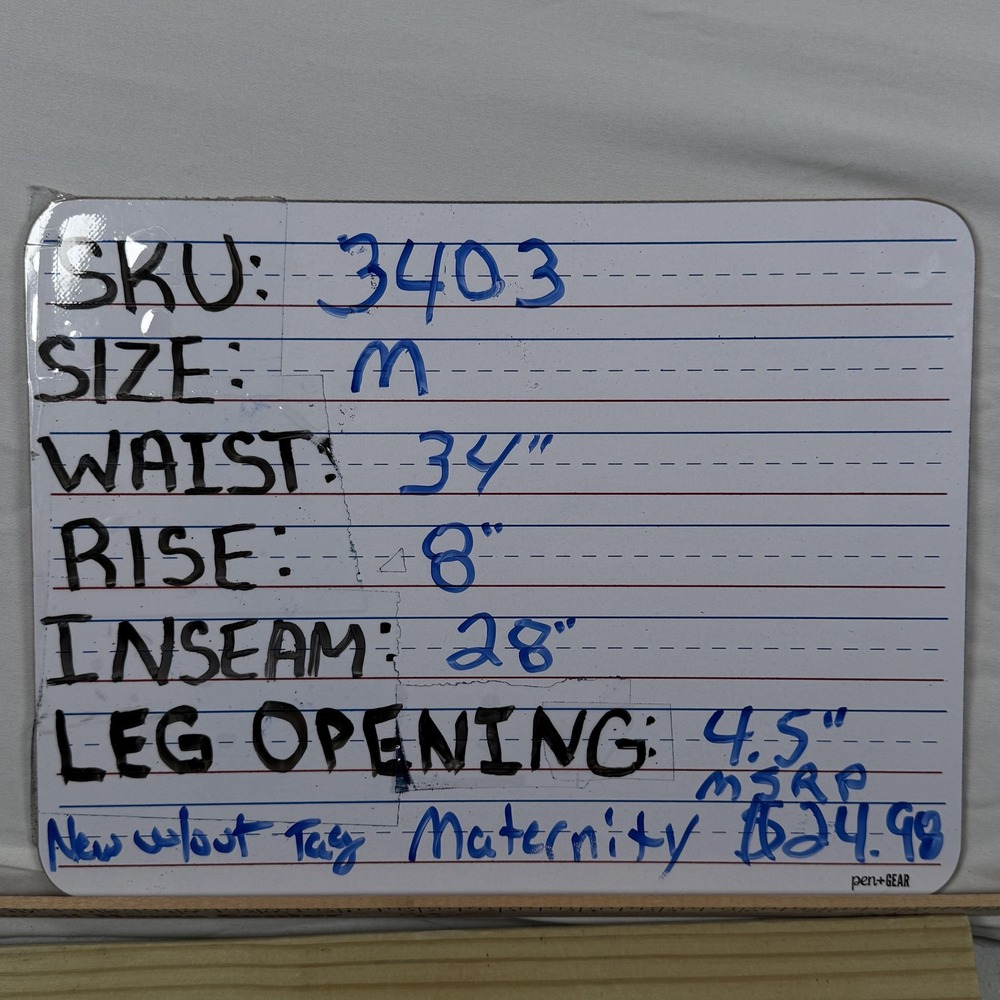 SKU: 3403
SIZE: M
WAIST: 34"
RISE: 8"
INSEAM: 28"
LEG OPENING: 4.5"
MSRP
New w/out Tag Maternity $24.98
pen+GEAR